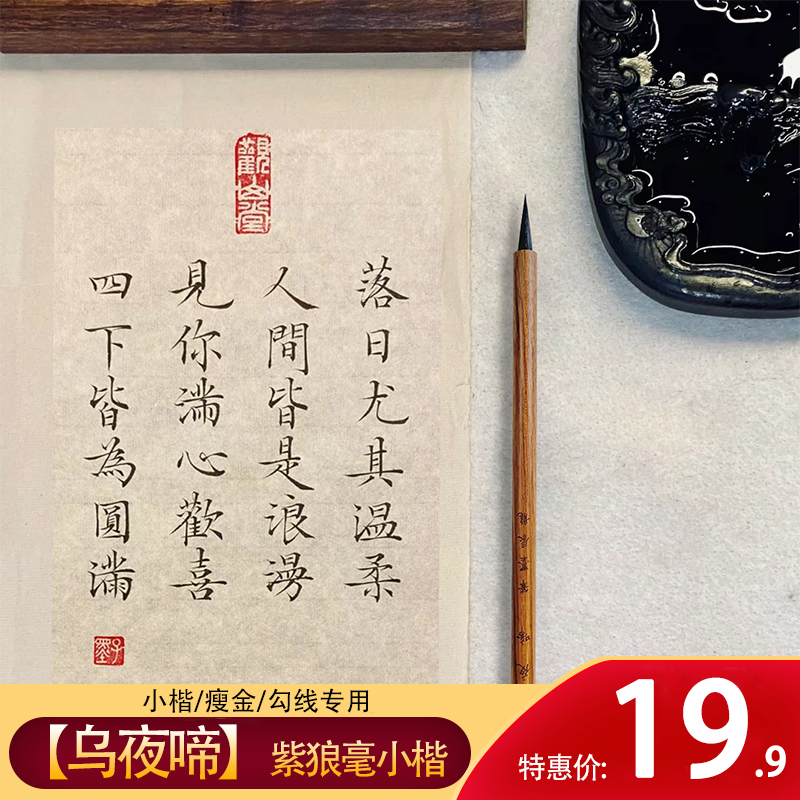 觀山堂
落日尤其温柔
人間皆是浪漫
見你滿心歡喜
四下皆為圓滿
子墨
小楷/瘦金/勾线专用
【乌夜啼】 紫狼毫小楷
特惠价: 19.9